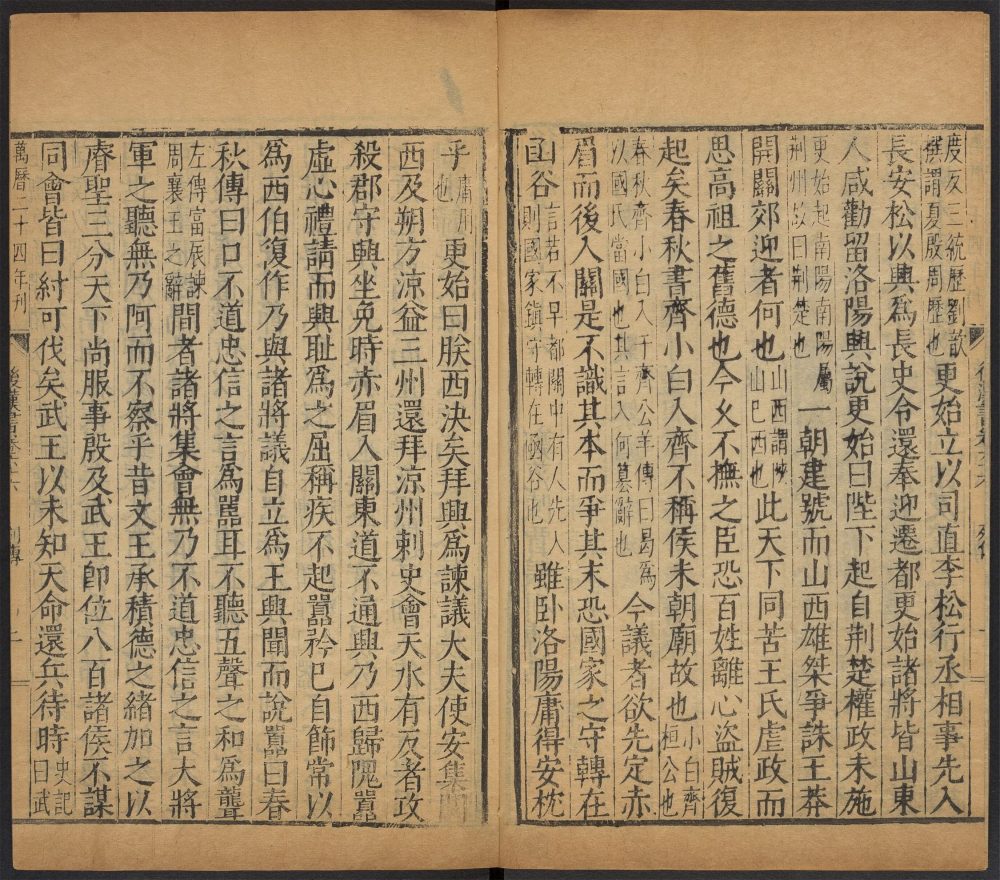 度反三統歷劉歆
撰謂夏殷周歷也
更始立以司直李松行丞相事先入
長安松以興爲長史令還奉迎遷都更始諸將皆山東
人咸勸留洛陽興說更始曰陛下起自荆楚權政未施
更始起南陽南陽屬
荆州故曰荆楚也
一朝建號而山西雄桀爭誅王莽
開關郊迎者何也
山西謂陜
山巳西也
此天下同苦王氏虐政而
思高祖之舊德也今久不撫之臣恐百姓離心盜賊復
起矣春秋書齊小白入齊不稱侯未朝廟故也
小白齊
桓公也
春秋齊小白入于齊公羊傳曰曷爲
以國氏當國也其言入何篡辭也
今議者欲先定赤
眉而後入關是不識其本而爭其末恐國家之守轉在
函谷
言若不早都關中有人先入
則國家鎮守轉在函谷也
雖卧洛陽庸得安枕
後漢書卷六十六
列傳
乎
庸用
也
更始曰朕西決矣拜興爲諫議大夫使安集關
西及朔方涼益三州還拜涼州刺史會天水有反者攻
殺郡守興坐免時赤眉入關東道不通興乃西歸隗囂
虛心禮請而興恥爲之屈稱疾不起囂矜巳自飾常以
爲西伯復作乃與諸將議自立爲王興聞而說囂曰春
秋傳曰口不道忠信之言爲嚚耳不聽五聲之和爲聾
左傳富辰諫
周襄王之辭
間者諸將集會無乃不道忠信之言大將
軍之聽無乃阿而不察乎昔文王承積德之緒加之以
睿聖三分天下尚服事殷及武王即位八百諸侯不謀
同會皆曰紂可伐矣武王以未知天命還兵待時
史記
曰武
萬曆二十四年刊
後漢書卷六十六
列傳
二